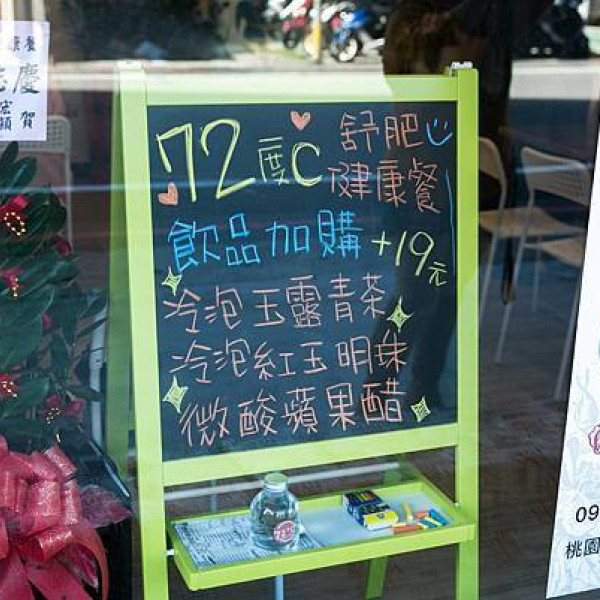 72度C 舒肥
健康餐
飲品加購 +19元
冷泡玉露青茶
冷泡紅玉明珠
微酸蘋果醋
慶
賀
72
09
桃園